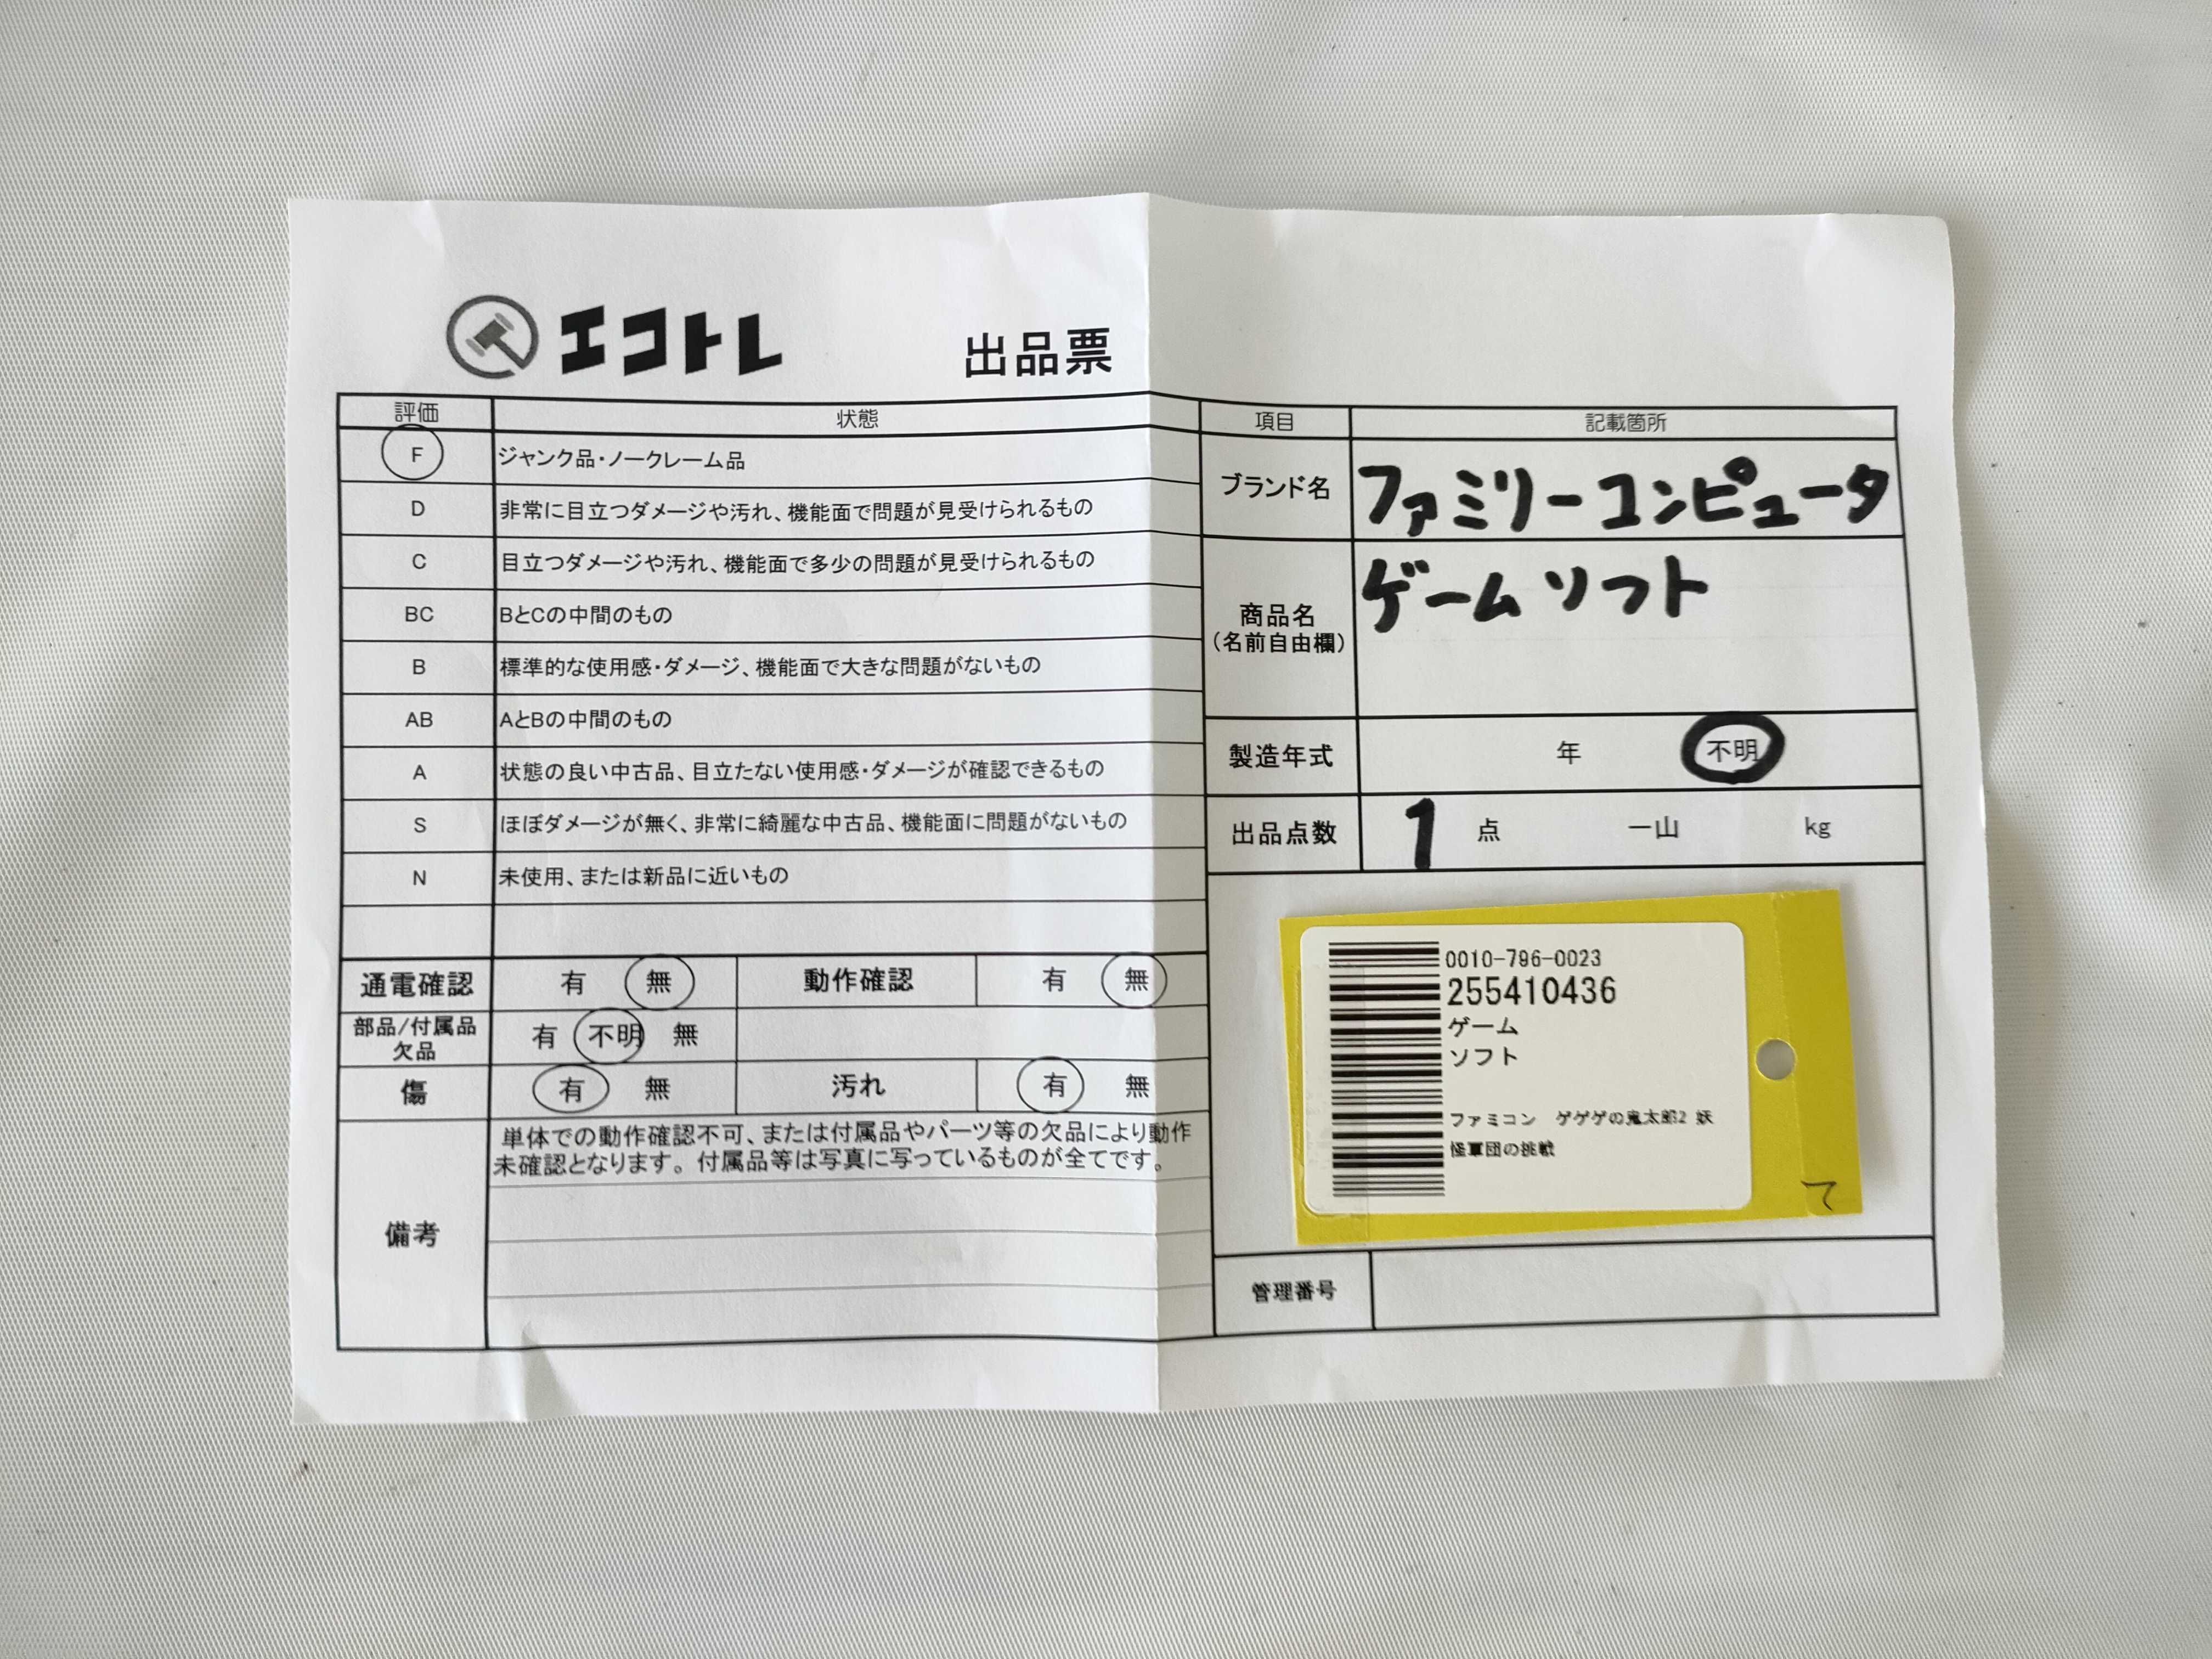 エコトレ 出品票
評価 状態
F ジャンク品・ノークレーム品
D 非常に目立つダメージや汚れ、機能面で問題が見受けられるもの
C 目立つダメージや汚れ、機能面で多少の問題が見受けられるもの
BC BとCの中間のもの
B 標準的な使用感・ダメージ、機能面で大きな問題がないもの
AB AとBの中間のもの
A 状態の良い中古品、目立たない使用感・ダメージが確認できるもの
S ほぼダメージが無く、非常に綺麗な中古品、機能面に問題がないもの
N 未使用、または新品に近いもの
通電確認 有 無 動作確認 有 無
部品/付属品
欠品 有 不明 無
傷 有 無 汚れ 有 無
備考
単体での動作確認不可、または付属品やパーツ等の欠品により動作
未確認となります。付属品等は写真に写っているものが全てです。
項目 記載箇所
ブランド名 ファミリーコンピュータ
商品名
(名前自由欄)
ゲームソフト
製造年式 年 不明
出品点数 1 点 一山 kg
0010-796-0023
255410436
ゲーム
ソフト
ファミコン ゲゲゲの鬼太郎2 妖
怪軍団の挑戦
て
管理番号